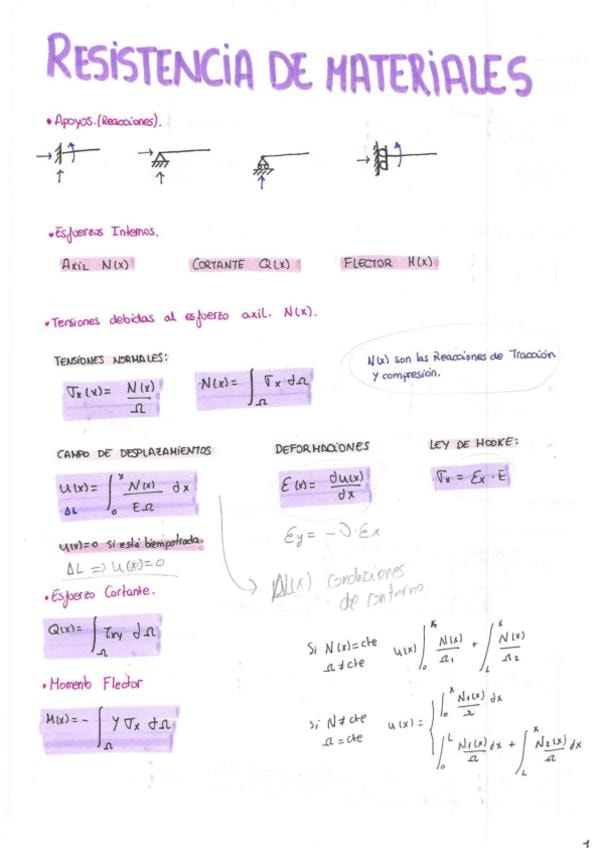 RESISTENCIA DE MATERIALES
• Apoyos. (Reacciones).
• Esfuerzos Internos.
AXIL N(x) CORTANTE Q(x) FLECTOR M(x)
• Tensiones debidas al esfuerzo axil. N(x).
TENSIONES NORMALES:
N(x) son las Reacciones de Tracción
y compresión.
σx(x) = N(x)/Ω
·N(x) = ∫Ω σx dΩ
CAMPO DE DESPLAZAMIENTOS DEFORMACIONES LEY DE HOOKE:
u(x) = ∫0^x N(x)/EΩ dx
ΔL
ε(x) = du(x)/dx
σx = εx · E
εy = -ν·εx
si está biempotrada.
ΔL => u(x)=0
condiciones
de contorno
• Esfuerzo Cortante.
Q(x) = ∫Ω τxy dΩ
Si N(x)=cte
Ω≠cte
u(x) ∫0 N(x)/Ω1 + ∫L N(x)/Ω2
• Momento Flector
M(x) = - ∫Ω y σx dΩ
si N≠cte
Ω=cte
u(x) = { ∫0^x N1(x)/Ω dx
∫0^L N1(x)/Ω dx + ∫L^x N2(x)/Ω dx